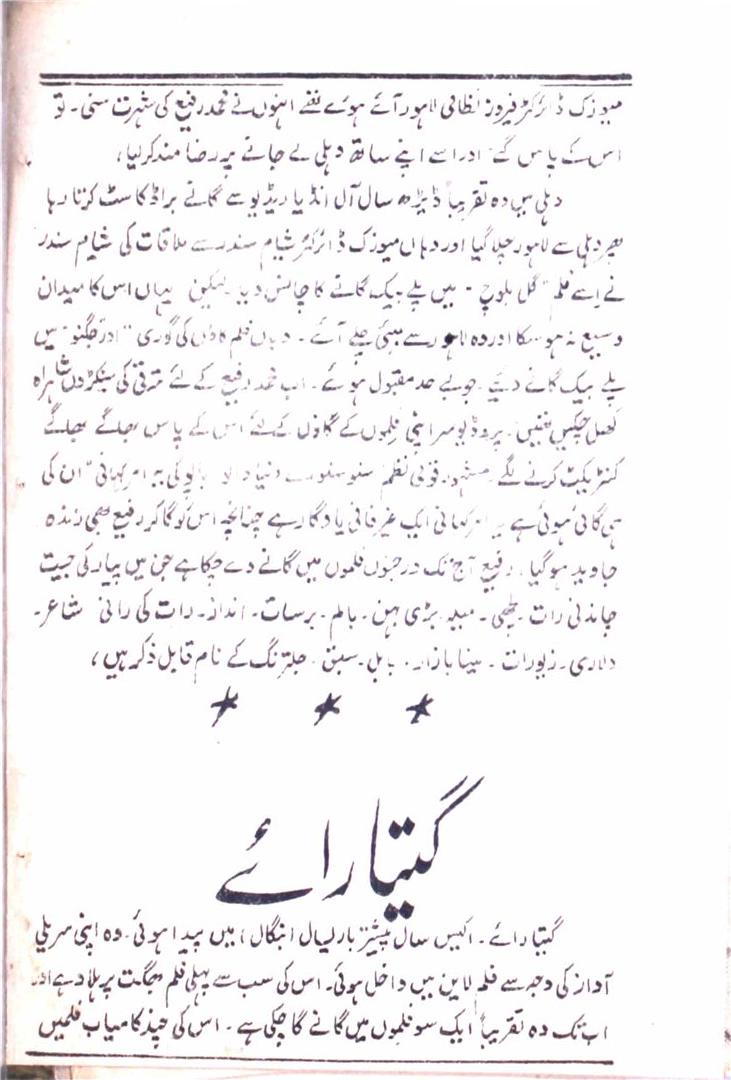 میوزک ڈائرکٹر فیروز نظامی لاہور آئے ہوئے تھے انہوں نے محمد رفیع کی شہرت سنی۔ تو
اس کے پاس گئے اور اسے اپنے ساتھ دہلی لے جانے پر رضامند کر لیا،
دہلی میں وہ تقریباً ڈیڑھ سال آل انڈیا ریڈیو سے گانے براڈ کاسٹ کرتا رہا
پھر دہلی سے لاہور چلا گیا اور وہاں میوزک ڈائرکٹر شیام سندر سے ملاقات کی شیام سندر
نے اسے فلم "گل بلوچ" میں پلے بیک گانے کا چانس دیا۔ لیکن یہاں اس کا میدان
وسیع نہ ہو سکا اور وہ لاہور سے بمبئی چلے آئے۔ وہاں فلم گاؤں کی گوری" اور جگنو" میں
پلے بیک گانے دیئے جو بے حد مقبول ہوئے۔ اب محمد رفیع کے لئے ترقی کی سینکڑوں شاہراہ
کھل چکیں تھیں۔ پروڈیوسر اپنی فلموں کے گاؤں کے لئے اس کے پاس بھاگے بھاگے
کنٹریکٹ کرنے لگے مشہور قومی نظم سنو سنو اے دنیا والو باپو کی یہ امر کہانی" ان کی
ہی گائی ہوئی ہے یہ امر کہانی ایک غیر فانی یادگار ہے چنانچہ اس کو گا کر رفیع بھی زندہ
جاوید ہو گیا۔ رفیع آج تک درجنوں فلموں میں گانے دے چکا ہے جن میں پیار کی جیت
چاندنی رات۔ چٹھی۔ میلہ۔ بڑی بہن۔ بالم۔ برسات۔ انداز۔ رات کی رانی شاعر۔
دلاری۔ زیورات۔ مینا بازار۔ بابل۔ سبق۔ جلترنگ کے نام قابل ذکر ہیں،
گیتا رائے
گیتا رائے۔ اکیس سال پیشتر باریسال (بنگال) میں پیدا ہوئی۔ وہ اپنی سریلی
آواز کی وجہ سے فلم لاین میں داخل ہوئی۔ اس کی سب سے پہلی فلم بھگت پرہلاد ہے اور
اب تک وہ تقریباً ایک سو فلموں میں گانے گا چکی ہے۔ اس کی چند کامیاب فلمیں